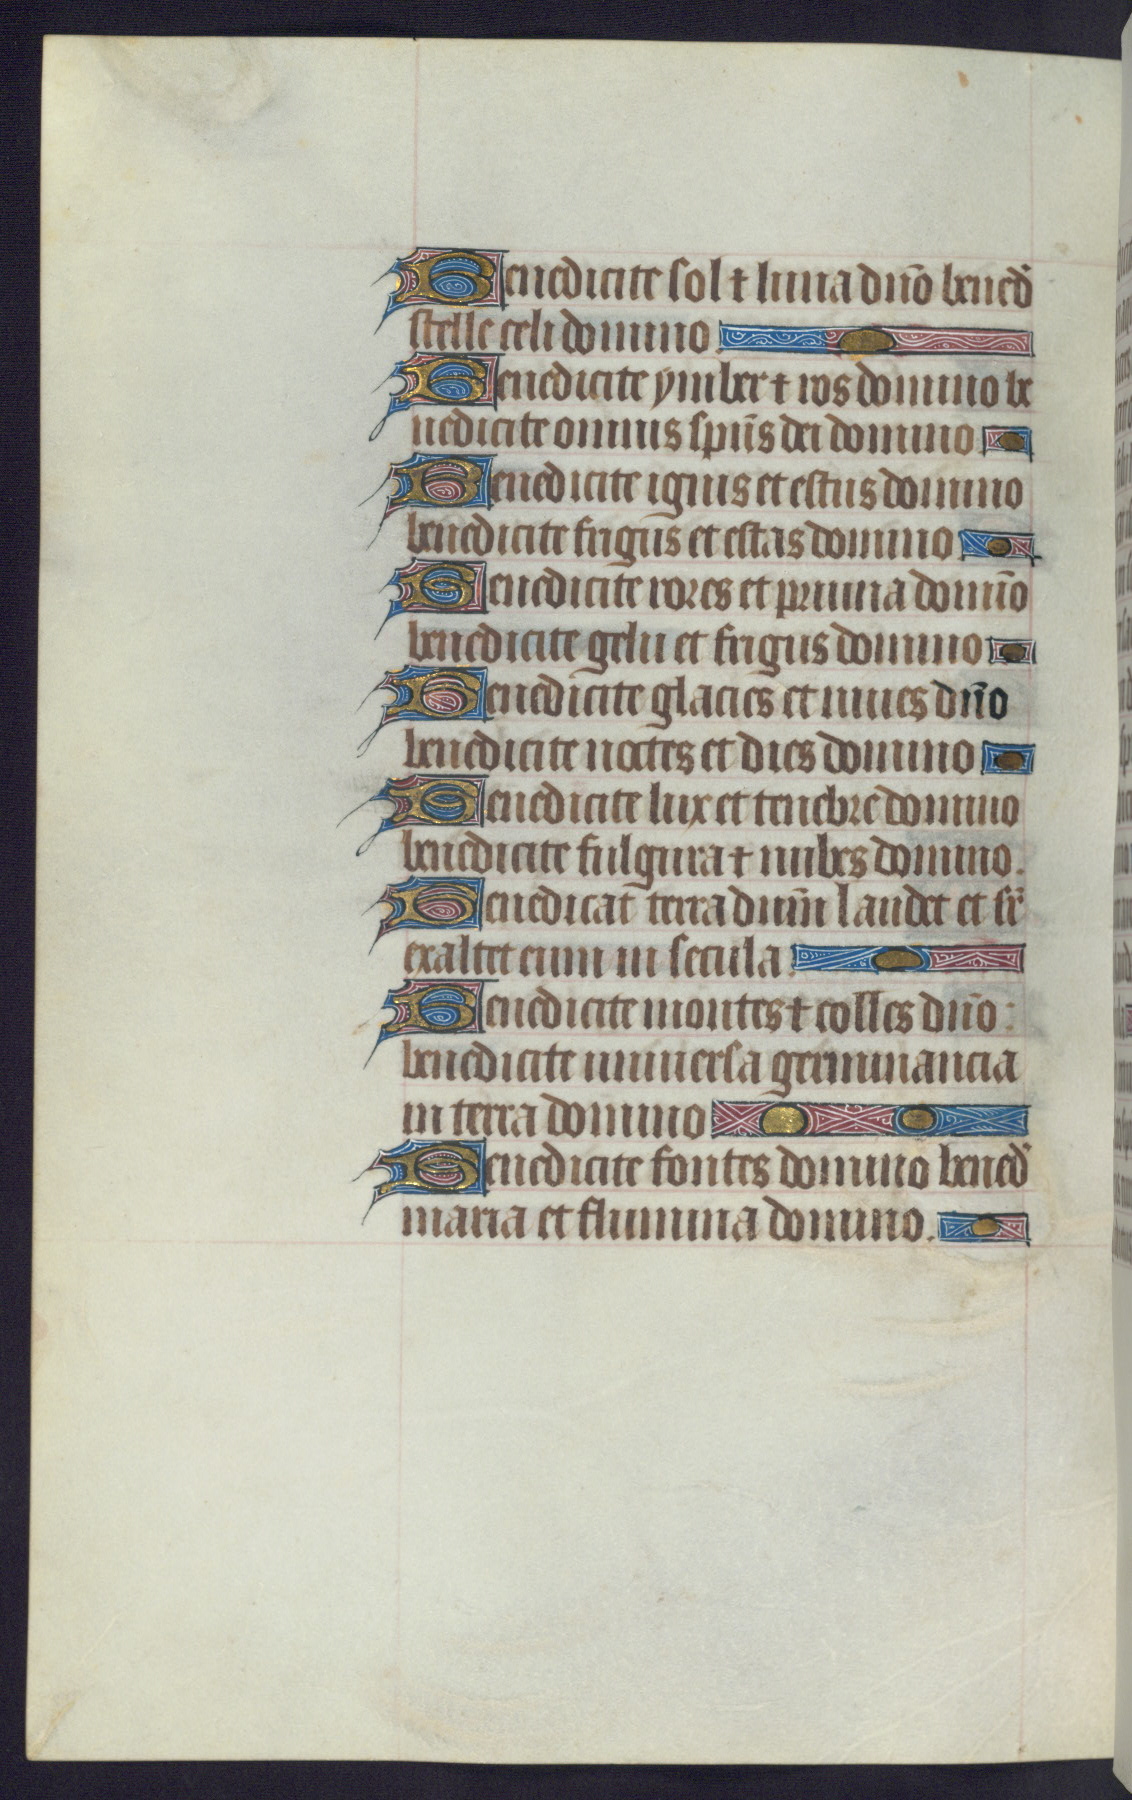 Benedicite sol ⁊ luna dño bened̃
stelle celi domino.
Benedicite ymber ⁊ ros domino be
nedicite omnis spũs dei domino
Benedicite ignis et estus domino
benedicite frigus et estas domino
Benedicite rores et pruina domĩo
benedicite gelu et frigus domino
Benedicite glacies et niues dño
benedicite noctes et dies domino
Benedicite lux et tenebre domino
benedicite fulgura ⁊ nubes domino.
Benedicat terra dnũm laudet et sr̃
exaltet eum in secula.
Benedicite montes ⁊ colles dño:
benedicite uniuersa germinancia
in terra domino
Benedicite fontes domino bened̃
maria et flumina domino.